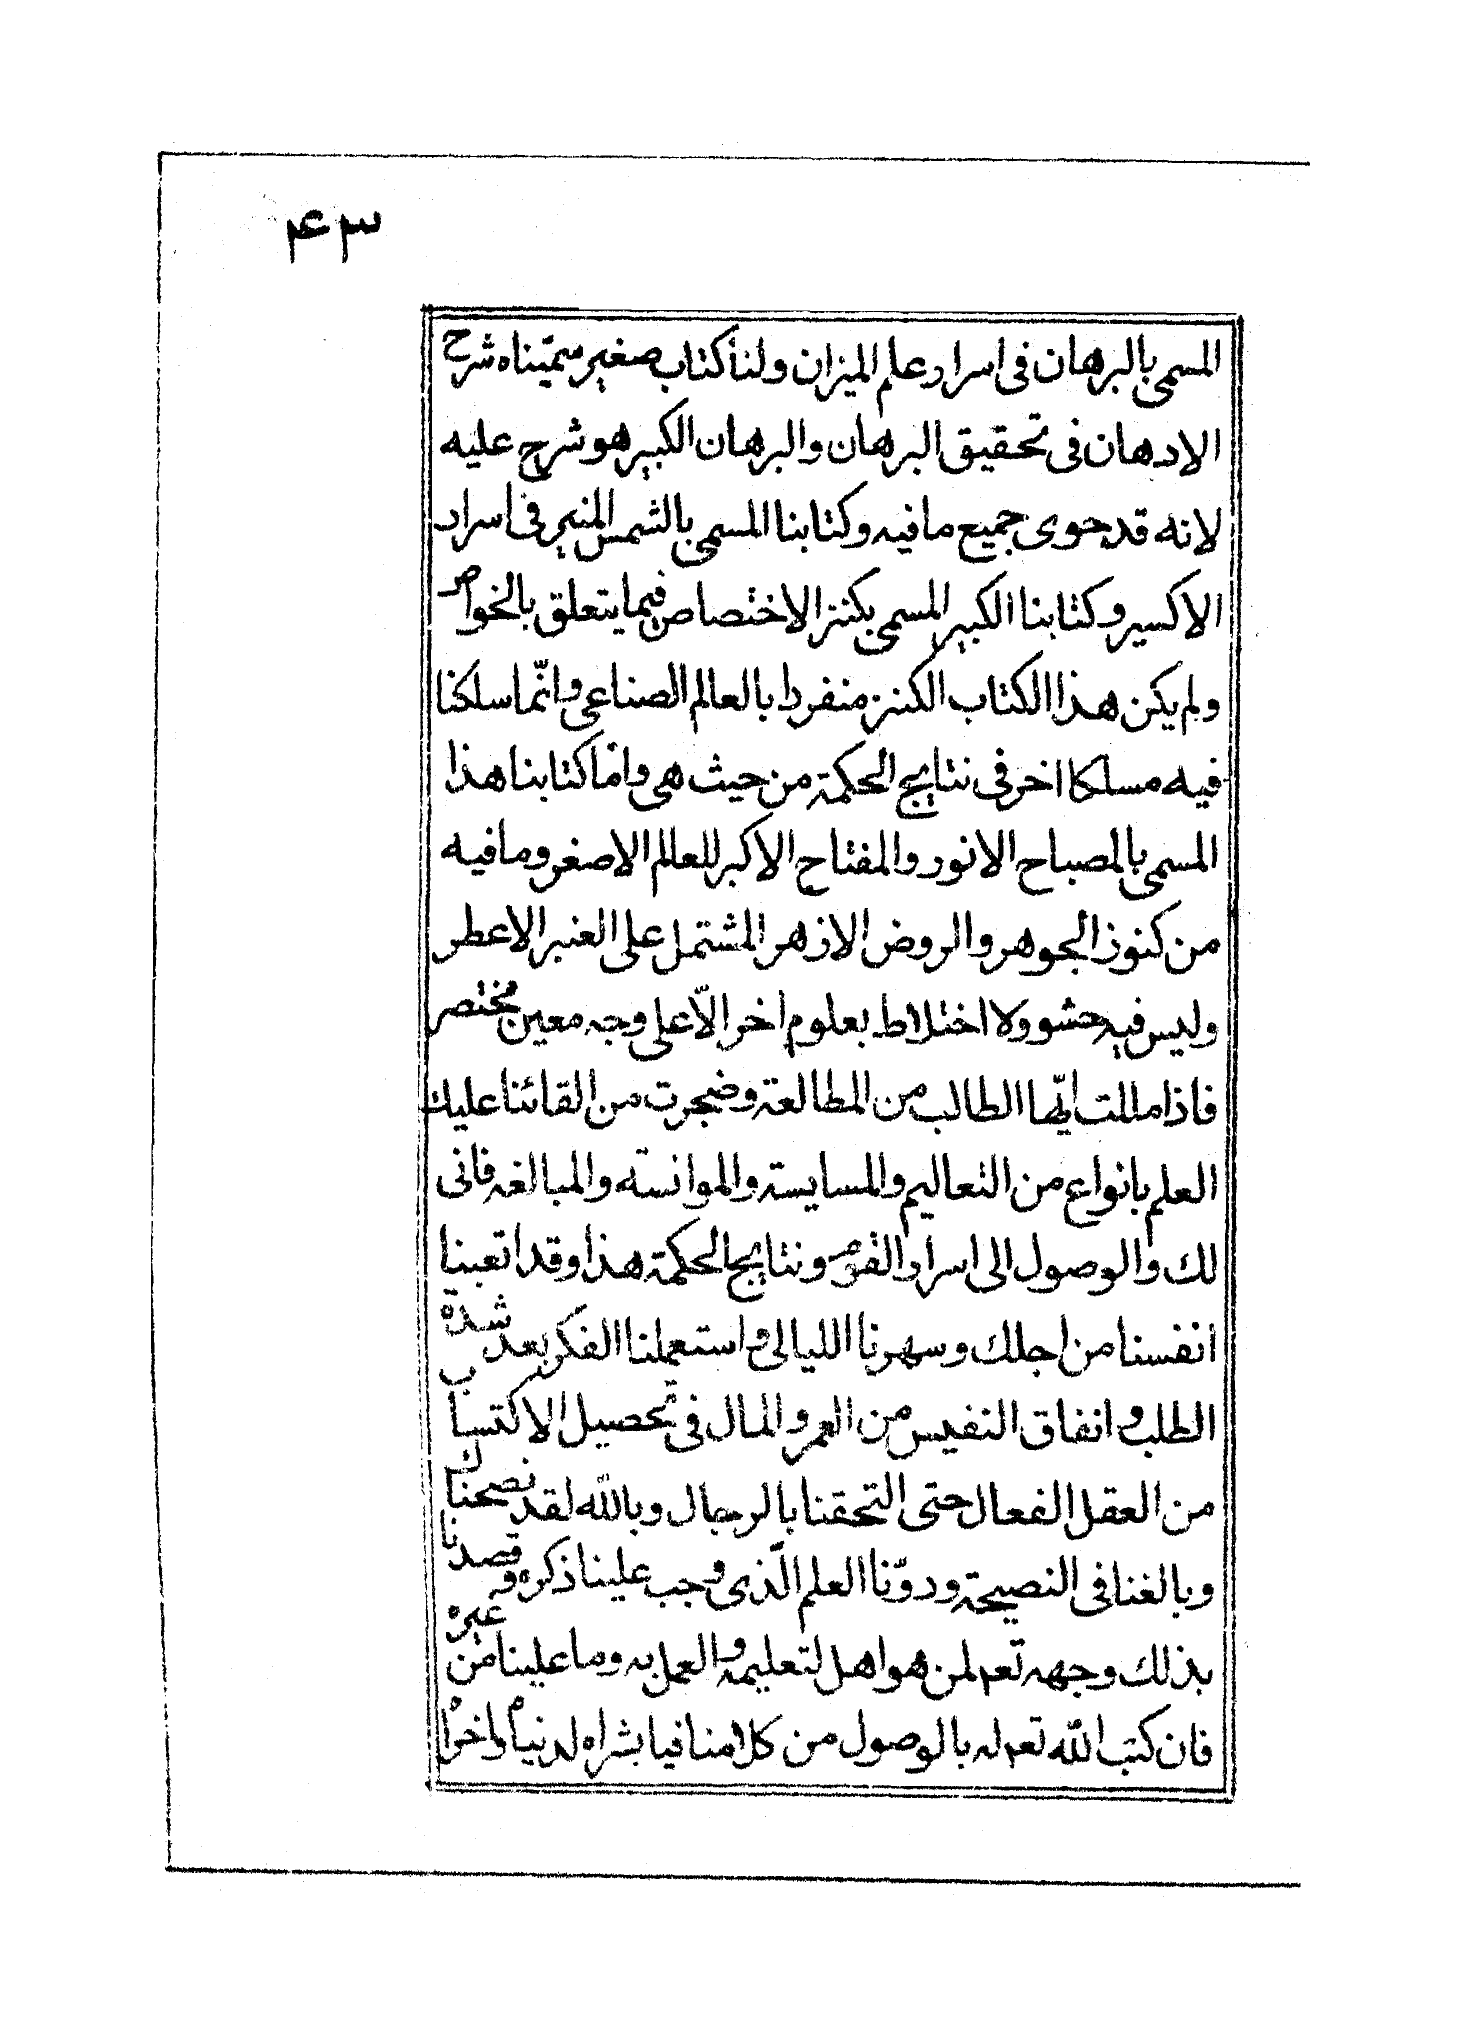 ۴۳
المسمى بالبرهان فى اسرار علم الميزان ولنا كتاب صغير سميّناه شرح
الادهان فى تحقيق البرهان والبرهان الكبير هو شرح عليه
لانه قد حوى جميع ما فيه وكتابنا المسمى بالشمس المنير فى اسرار
الاكسير وكتابنا الكبير المسمى بكنز الاختصاص فيما يتعلق بالخواص
ولم يكن هذا الكتاب الكنز منفردا بالعالم الصناعى وانّما سلكنا
فيه مسلكا اخر فى نتايج الحكمة من حيث هى وامّا كتابنا هذا
المسمى بالمصباح الانور والمفتاح الاكبر للعالم الاصغر وما فيه
من كنوز الجوهر والروض الازهر المشتمل على العنبر الاعطر
وليس فيه حشو ولا اختلاط بعلوم اخر الاّ على وجه معين مختصر
فاذا مللت ايّها الطالب من المطالعة وضجرت من القائنا عليك
العلم بانواع من التعاليم والمسايسة والموانسته والمبالغه فانى
لك والوصول الى اسرار القوم ونتايج الحكمة هذا وقد اتعبنا
انفسنا من اجلك وسهرنا الليالى واستعملنا الفكر بعد شدة
الطلب وانفاق النفيس من العمر والمال فى تحصيل الاكتساب
من العقل الفعال حتى التحقنا بالرجال وبالله لقد نصحناك
وبالغنا فى النصيحة ودوّنا العلم الّذى وجب علينا ذكره وقصدنا
بذلك وجهه تعم لمن هو اهل لتعليمه والعمل به وما علينا من غيره
فان كتب الله تعم له بالوصول من كلامنا فيا بشراه لدنياه واخراه